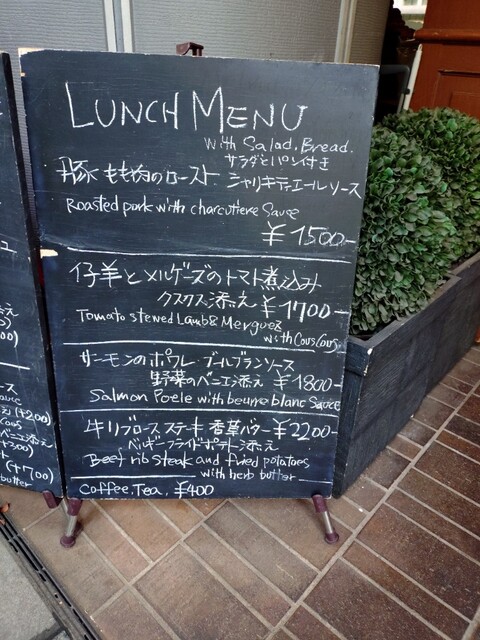 LUNCH MENU
with Salad, Bread.
サラダとパン付き
豚もも肉のロースト シャリキティエールソース
Roasted pork with charcutiere Sauce
¥1500-
仔羊とメルゲーズのトマト煮込み
クスクス添え ¥1700-
Tomato stewed Lamb & Merguez
with Cous Cous
サーモンのポワレ・ブールブランソース
野菜のベニエ添え ¥1800-
Salmon Poele with beurre blanc Sauce
牛リブロースステーキ 香草バター ¥2200-
ベルギーフライドポテト添え
Beef rib steak and fried potatoes
with herb butter
Coffee, Tea, ¥400
ュ
添え
00)
ース
auce
え (+200)
ベニエ添え
+300)
え
(+700)
butter